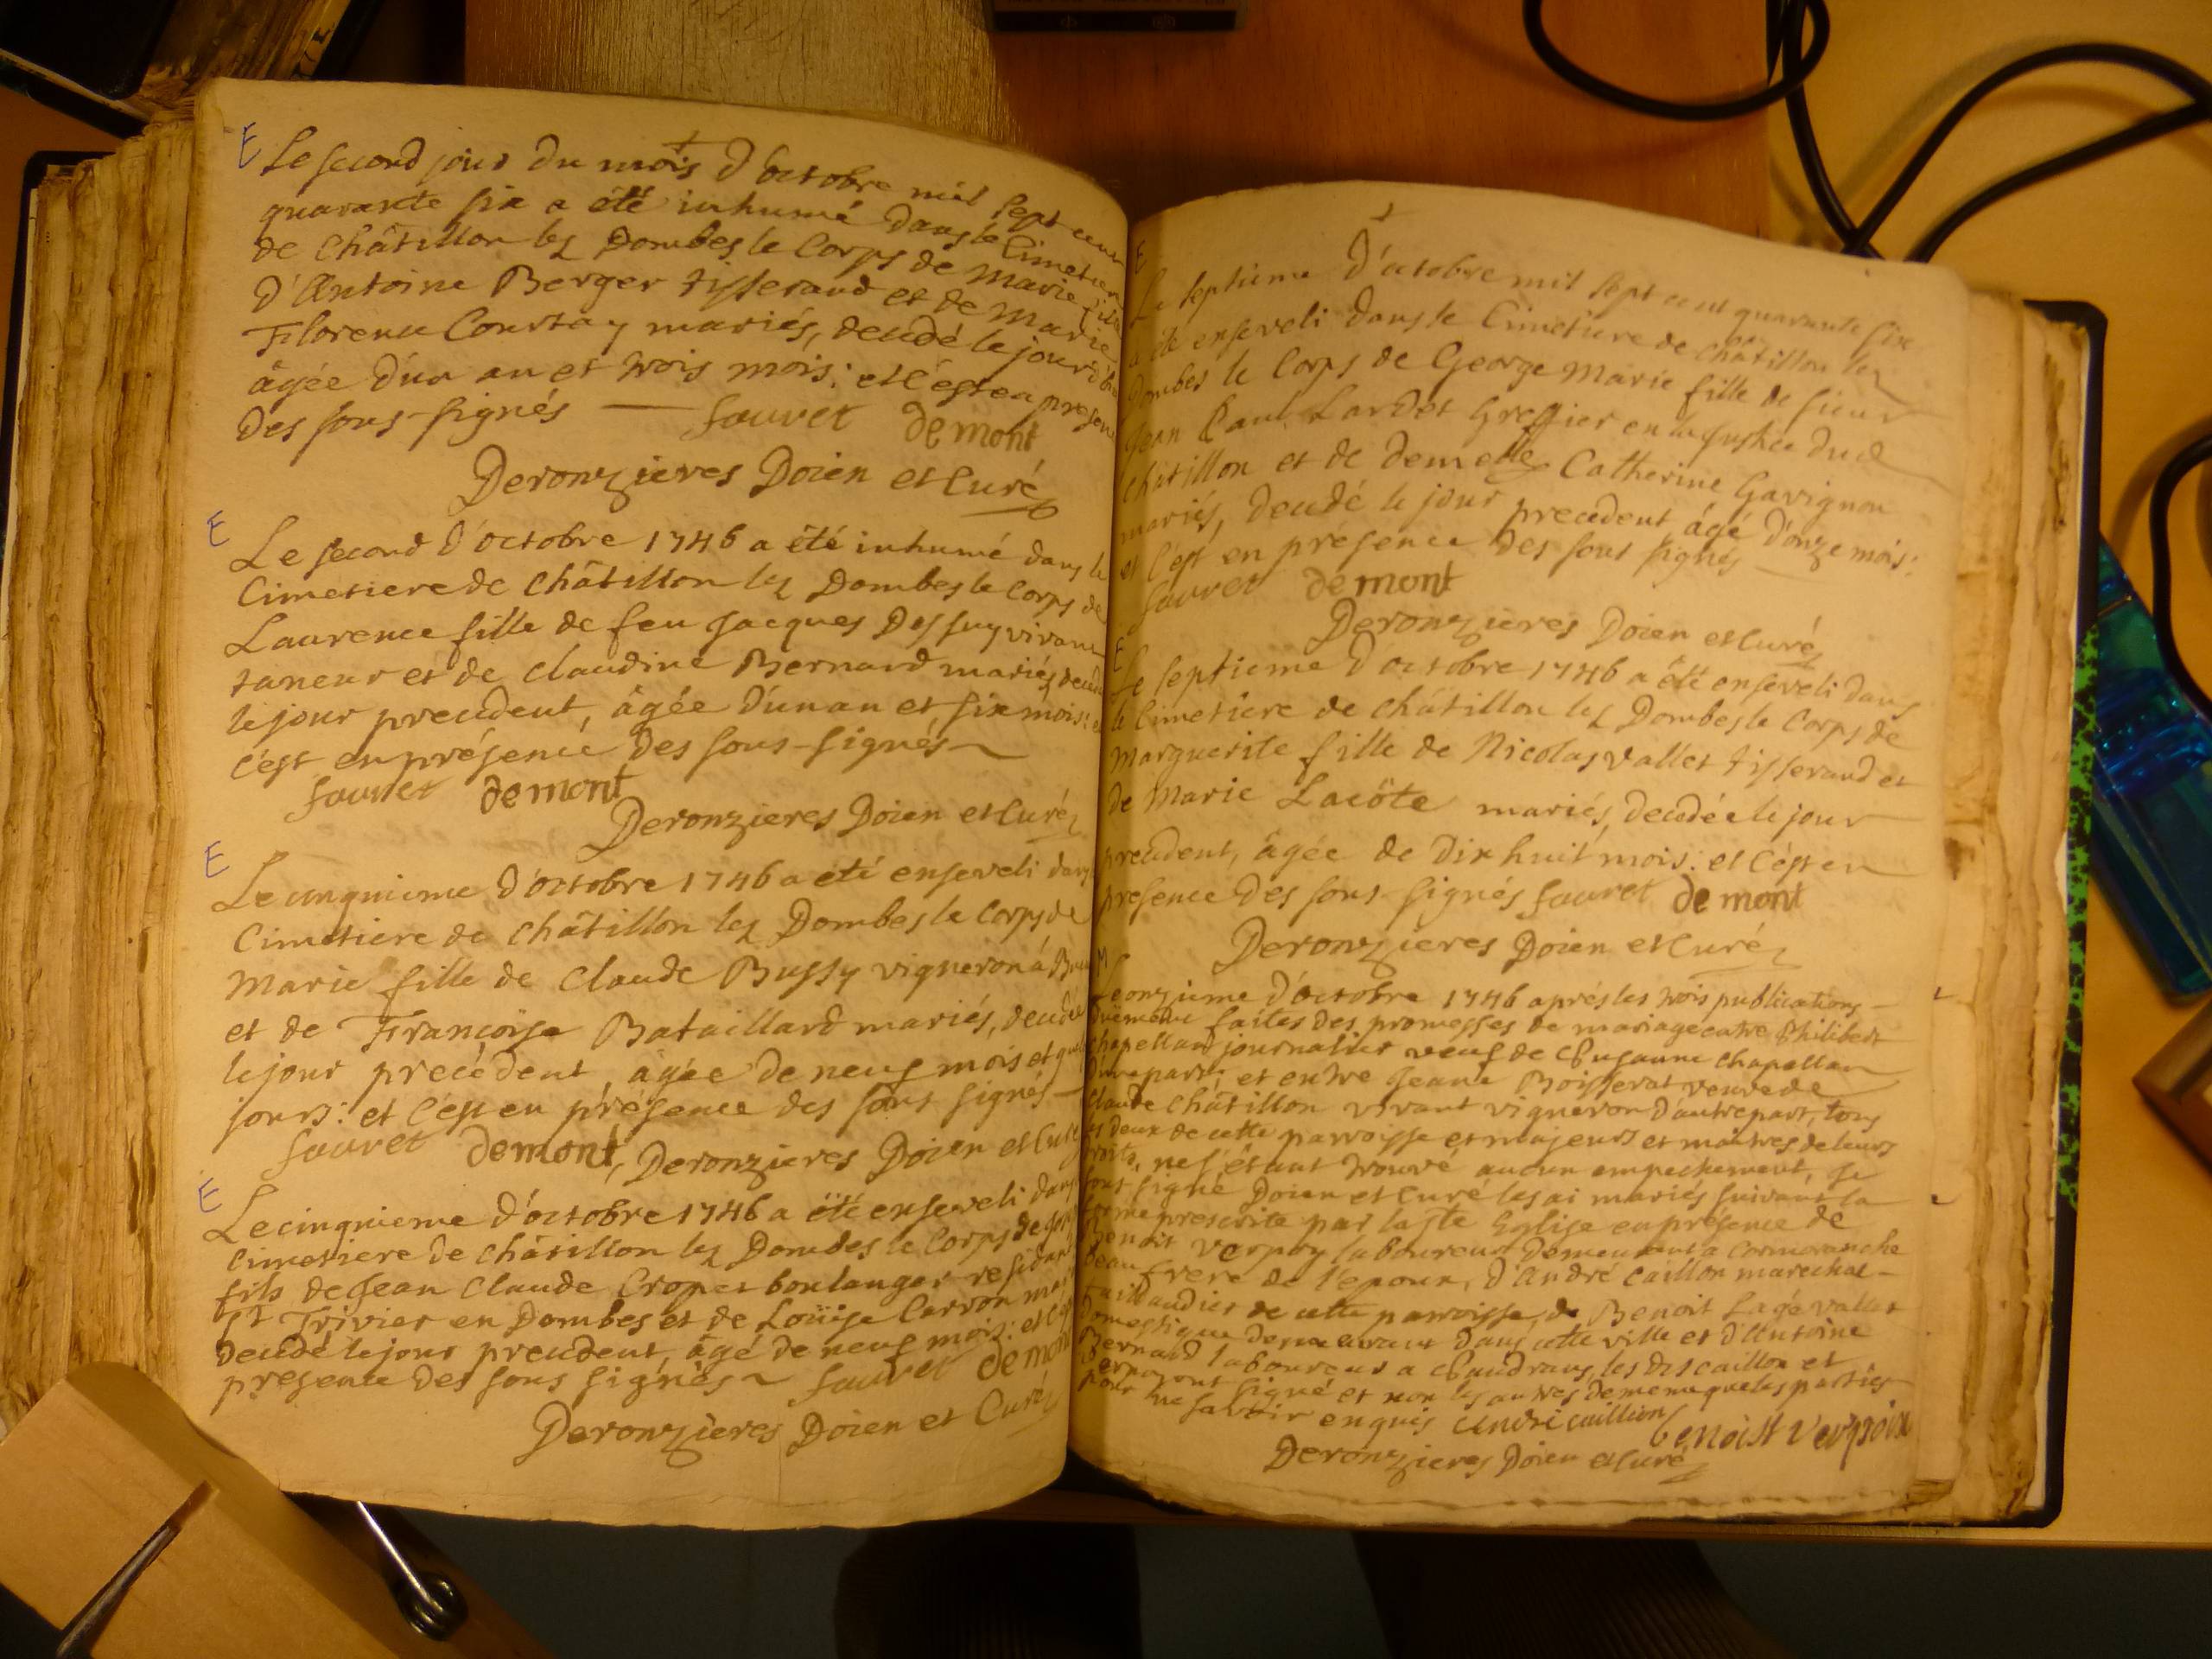 E Le second jour du mois d'octobre mil sept cent
quarante six a été inhumé dans le Cimetiere
de Châtillon les Dombes le Corps de Marie fille
d'Antoine Berger tisserand et de Marie
Florence Courtay mariés, decedé le jour d'hier
âgée d'un an et trois mois: et c'est en presence
des sous-signés — sauvet demont
Deronzieres Doien et Curé
E Le second d'octobre 1746 a été inhumé dans le
Cimetiere de Châtillon les Dombes le Corps de
Laurence fille de feu Jacques Dessuy vivant
taneur et de Claudine Bernard mariés decedée
le jour precedent, âgée d'un an et six mois: et
c'est en présence des sous-signés
sauvet demont
Deronzieres Doien et Curé
E Le cinquieme d'octobre 1746 a été enseveli dans
Cimetiere de Châtillon les Dombes le Corps de
Marie fille de Claude Bussy vigneron à
et de Françoise Bataillard mariés, decedée
le jour precédent, âgée de neuf mois et quelques
jours: et c'est en présence des sous signés
sauvet demont, Deronzieres Doien et Curé
E Le cinquieme d'octobre 1746 a été enseveli dans
Cimetiere de Châtillon les Dombes le Corps de
fils de Jean Claude Cropet boulanger residant
St Trivier en Dombes et de Loüise Carron mariés
decedé le jour precedent, âgé de neuf mois: et c'est
presence des sous signés sauvet demont
Deronzieres Doien et Curé
E
Le septieme d'octobre mil sept cent quarante six
a été enseveli dans le Cimetiere de Châtillon les
Dombes le Corps de George Marie fille de sieur
Jean Paul Lardet Greffier en la justice dud
Châtillon et de demelle Catherine Gavignon
mariés, decedé le jour precedent âgé d'onze mois:
et c'est en présence des sous signés
sauvet demont
Deronzieres Doien et Curé
E
Le septieme d'octobre 1746 a été enseveli dans
le Cimetiere de Châtillon les Dombes le Corps de
Marguerite fille de Nicolas Vallet tisserand et
de Marie Lacôte mariés, decedée le jour
precedent, âgée de dix huit mois: et c'est en
presence des sous signés sauvet demont
Deronzieres Doien et Curé
M
Le onzieme d'octobre 1746 aprés les trois publications
düement faites des promesses de mariage entre Philibert
Chapelland journalier veuf de Susanne Chapellan
d'une part, et entre Jeane Boisserat veuve de
Claude Châtillon vivant vigneron d'autre part, tous
les deux de cette parroisse et majeurs et maitres de leurs
droits, ne s'étant trouvé aucun empechement, Je
sous signé Doien et Curé les ai mariés suivant la
forme prescrite par la Ste Eglise en présence de
Benoit Verpoy laboureur demeurant a Cormoranche
beau frere de l'epoux, d'André Caillon marechal
taillandier de cette parroisse, de Benoit Lagé valet
domestique demeurant dans cette ville et d'Antoine
Bernard laboureur a Chaudrans, les dts Caillon et
Verpoy ont signé et non les autres de meme que les parties
pour ne savoir enquis André caillion benoist verpoix
Deronzieres Doien et Curé